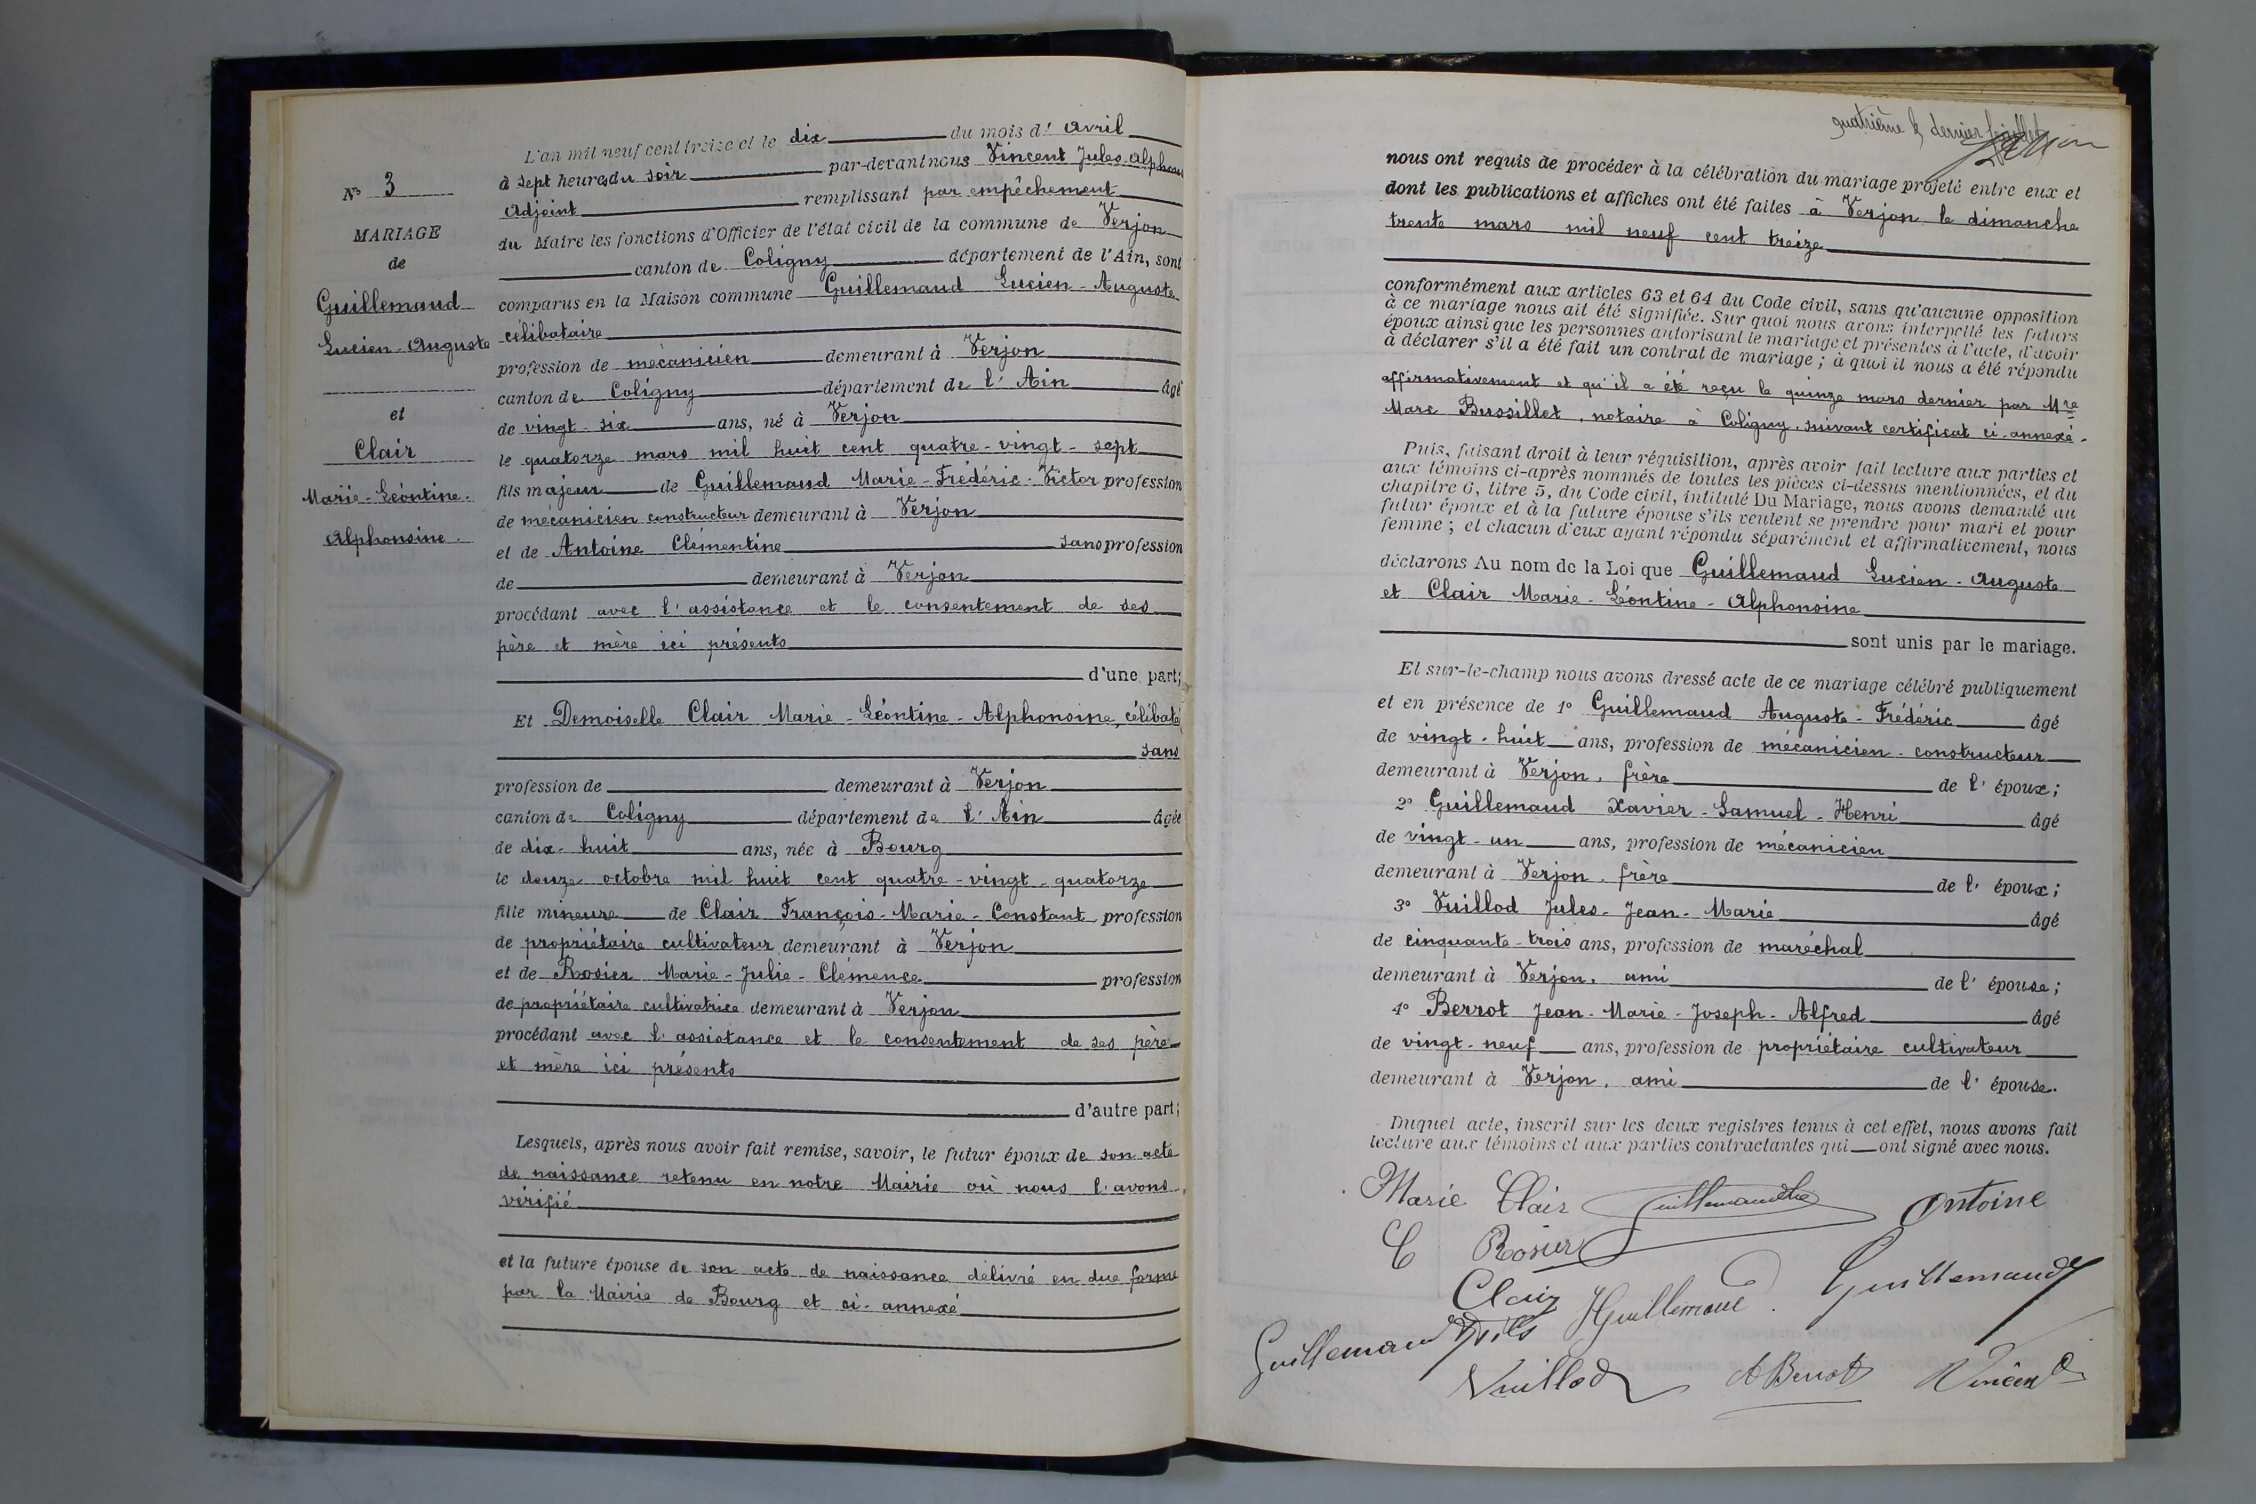 N° 3
MARIAGE
de
Guillemaud
Lucien-Auguste
et
Clair
Marie-Léontine-
Alphonsine.
L'an mil neuf cent treize et le dix du mois d' Avril
à sept heures du soir par-devant nous Vincent Jules-Alphonse
Adjoint remplissant par empêchement
du Maire les fonctions d'Officier de l'état civil de la commune de Verjon
canton de Coligny département de l'Ain, sont
comparus en la Maison commune Guillemaud Lucien-Auguste
célibataire
profession de mécanicien demeurant à Verjon
canton de Coligny département de l'Ain âgé
de vingt-six ans, né à Verjon
le quatorze mars mil huit cent quatre-vingt-sept
fils majeur de Guillemaud Marie-Frédéric-Victor profession
de mécanicien constructeur demeurant à Verjon
et de Antoine Clémentine sans profession
de demeurant à Verjon
procédant avec l'assistance et le consentement de ses
père et mère ici présents
d'une part;
Et Demoiselle Clair Marie-Léontine-Alphonsine, célibate
sans
profession de demeurant à Verjon
canton de Coligny département de l'Ain âgée
de dix-huit ans, née à Bourg
le douze octobre mil huit cent quatre-vingt-quatorze
fille mineure de Clair François-Marie-Constant profession
de propriétaire cultivateur demeurant à Verjon
et de Rosier Marie-Julie-Clémence profession
de propriétaire cultivatrice demeurant à Verjon
procédant avec l'assistance et le consentement de ses père
et mère ici présents
d'autre part;
Lesquels, après nous avoir fait remise, savoir, le futur époux de son acte
de naissance retenu en notre Mairie où nous l'avons
vérifié
et la future épouse de son acte de naissance délivré en due forme
par la Mairie de Bourg et ci-annexé
quatrième & dernier feuillet
nous ont requis de procéder à la célébration du mariage projeté entre eux et
dont les publications et affiches ont été faites à Verjon le dimanche
trente mars mil neuf cent treize
conformément aux articles 63 et 64 du Code civil, sans qu'aucune opposition
à ce mariage nous ait été signifiée. Sur quoi nous avons interpellé les futurs
époux ainsi que les personnes autorisant le mariage et présentes à l'acte, d'avoir
à déclarer s'il a été fait un contrat de mariage; à quoi il nous a été répondu
affirmativement et qu'il a été reçu le quinze mars dernier par Mre
Marc Bussillet, notaire à Coligny, suivant certificat ci-annexé.
Puis, faisant droit à leur réquisition, après avoir fait lecture aux parties et
aux témoins ci-après nommés de toutes les pièces ci-dessus mentionnées, et du
chapitre 6, titre 5, du Code civil, intitulé Du Mariage, nous avons demandé au
futur époux et à la future épouse s'ils veulent se prendre pour mari et pour
femme; et chacun d'eux ayant répondu séparément et affirmativement, nous
déclarons Au nom de la Loi que Guillemaud Lucien-Auguste
et Clair Marie-Léontine-Alphonsine
sont unis par le mariage.
Et sur-le-champ nous avons dressé acte de ce mariage célébré publiquement
et en présence de 1° Guillemaud Auguste-Frédéric âgé
de vingt-huit ans, profession de mécanicien-constructeur
demeurant à Verjon, frère de l'époux;
2° Guillemaud Xavier-Samuel-Henri âgé
de vingt-un ans, profession de mécanicien
demeurant à Verjon, frère de l'époux;
3° Vuillod Jules-Jean-Marie âgé
de cinquante-trois ans, profession de maréchal
demeurant à Verjon, ami de l'épouse;
4° Berrot Jean-Marie-Joseph-Alfred âgé
de vingt-neuf ans, profession de propriétaire cultivateur
demeurant à Verjon, ami de l'épouse.
Duquel acte, inscrit sur les deux registres tenus à cet effet, nous avons fait
lecture aux témoins et aux parties contractantes qui ont signé avec nous.
Marie Clair Antoine
C Rosier
Clair HGuillemaud Guillemaud
Guillemaud Fils
Vuillod ABerrot Vincent